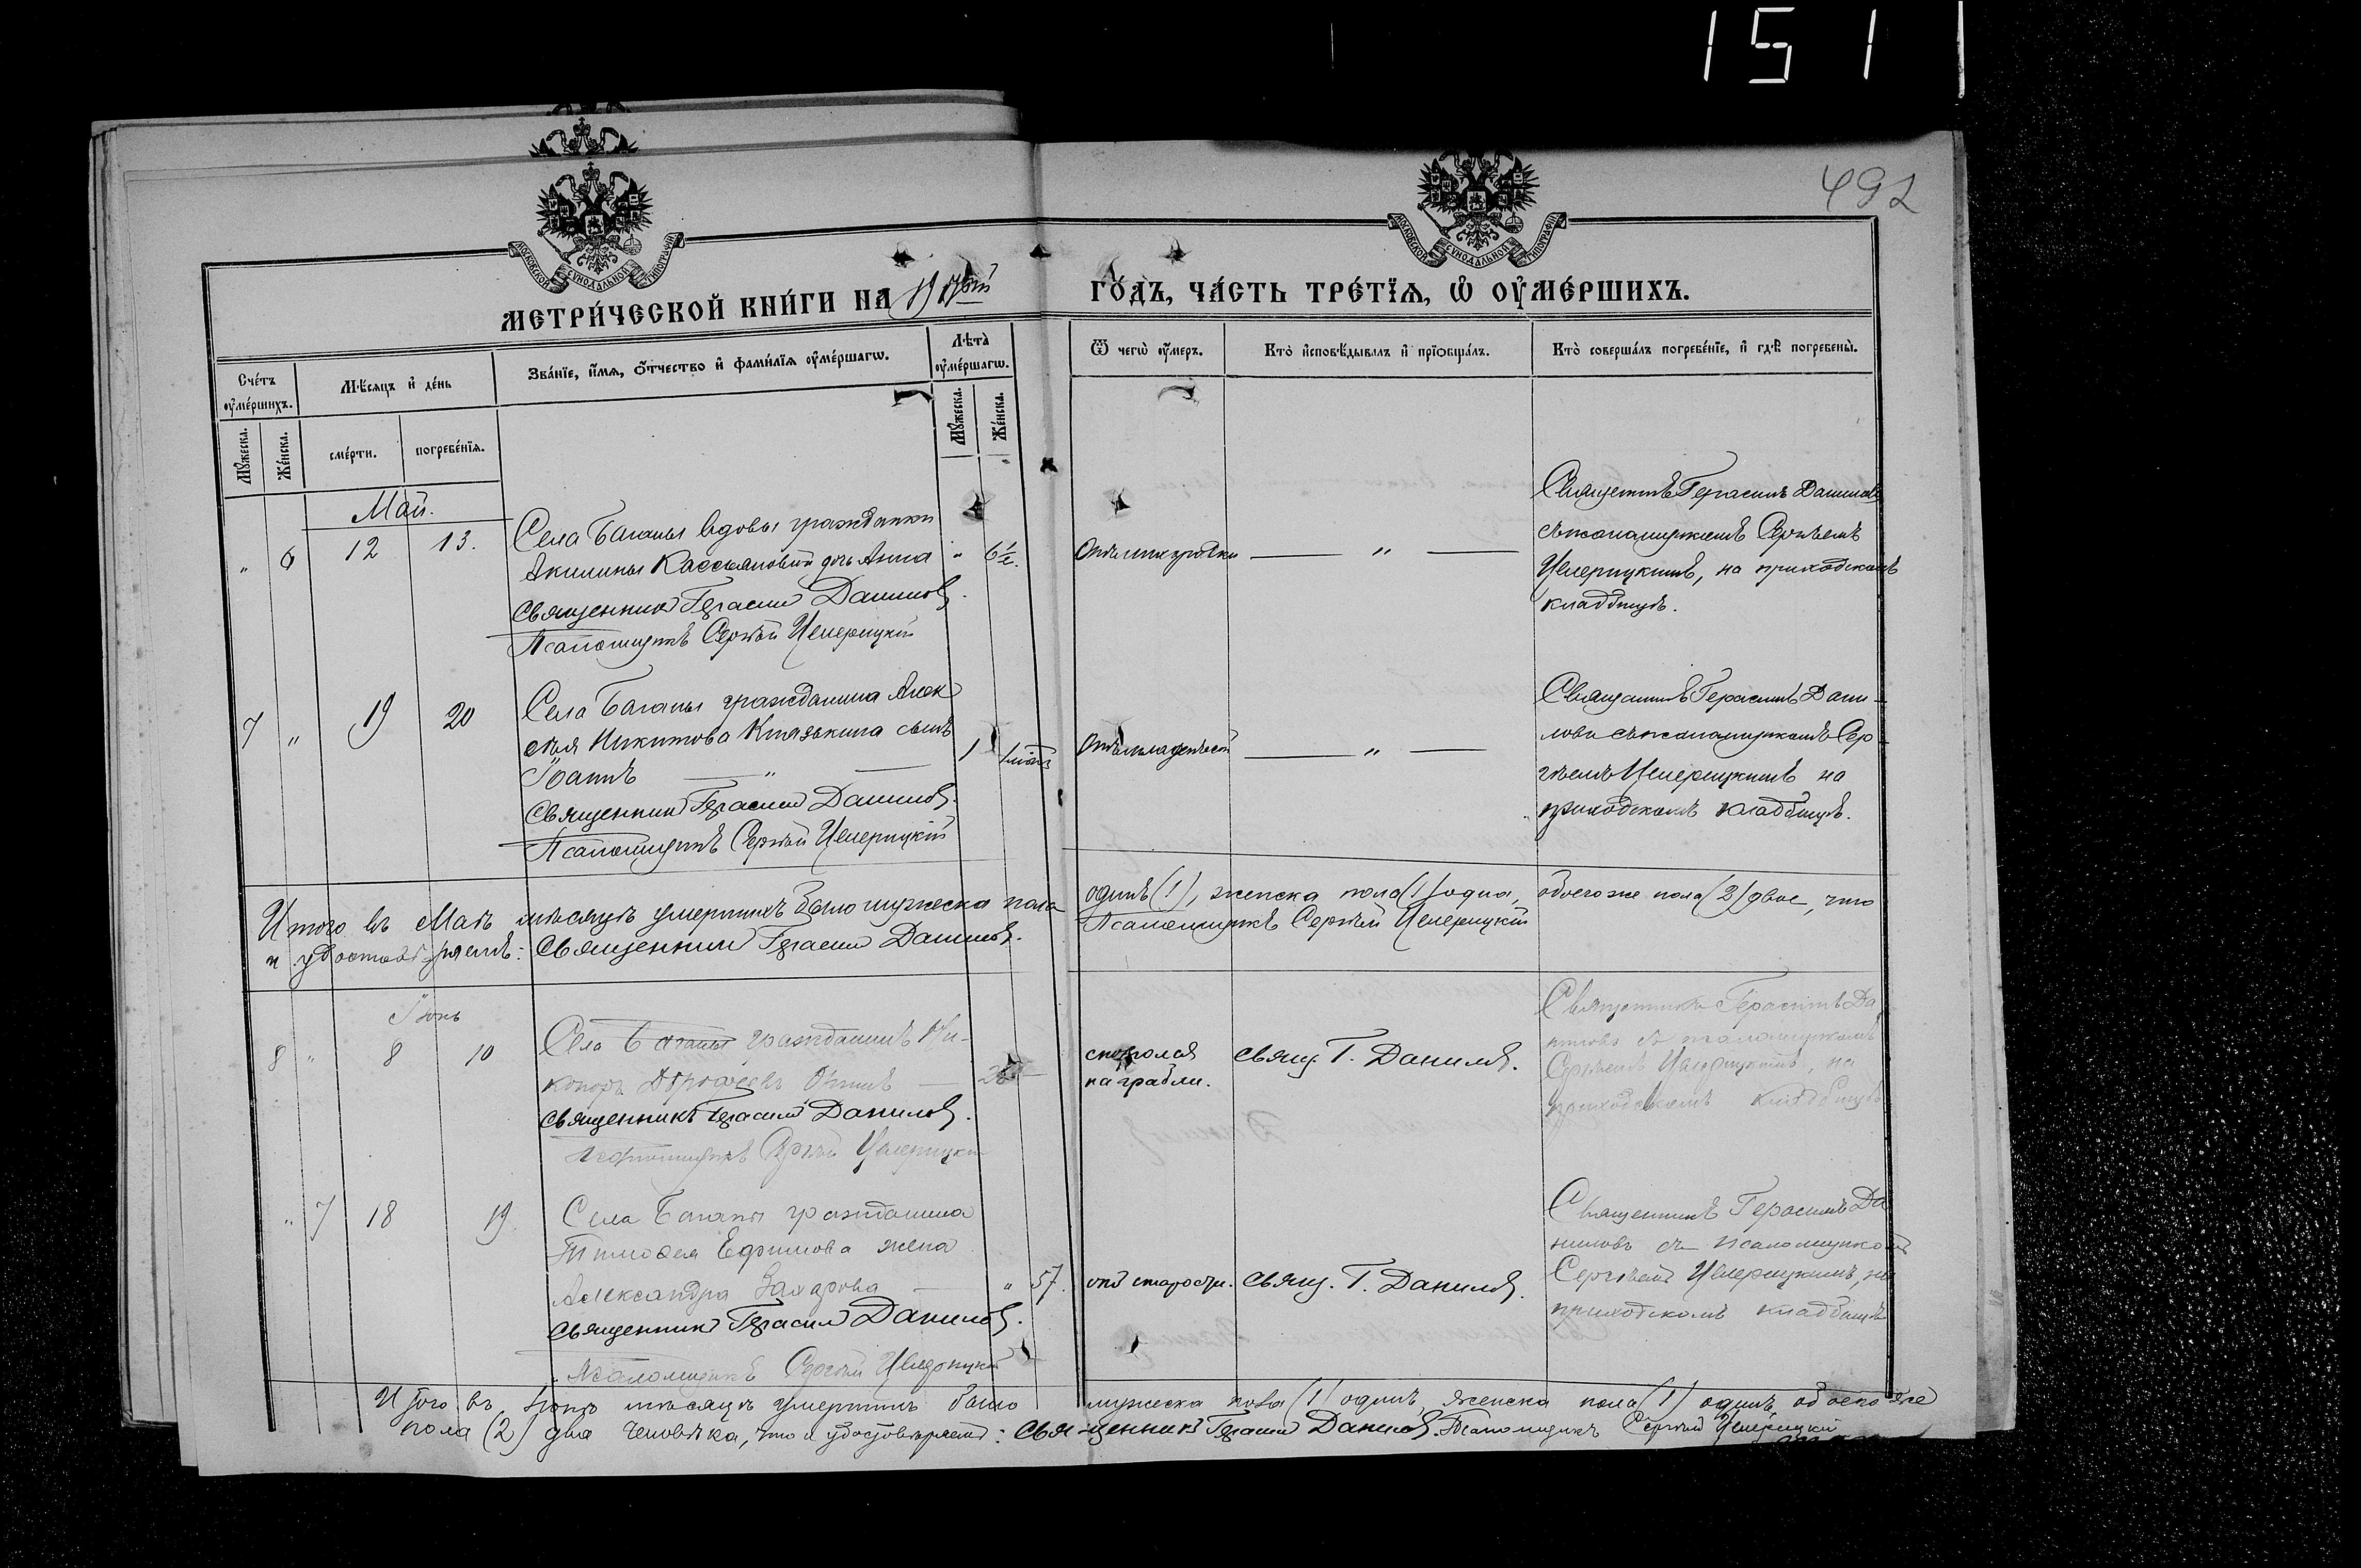 151
492
МОСКОВСКОЙ СѴНОДАЛЬНОЙ ТИПОГРАФІИ
МОСКОВСКОЙ СѴНОДАЛЬНОЙ ТИПОГРАФІИ
МЕТРИ́ЧЕСКОЙ КНИ́ГИ НА 19
ГО́ДЪ, ЧА́СТЬ ТРЕ́ТЇѦ, Ѡ҆ ОУ҆МЕ́РШИХЪ.
Сче́тъ оу҆ме́ршихъ.
Мꙋ́жеска.
Же́нска.
Мѣ́сяцъ и҆ де́нь
сме́рти.
погребе́нїѧ.
Зва́нїе, и҆́мѧ, ѻ҆́тчество и҆ фами́лїѧ оу҆ме́ршагѡ.
Лѣ́та оу҆ме́ршагѡ.
Мꙋ́жеска.
Же́нска.
Ѿ чегѡ̀ оу҆́меръ.
Кто̀ и҆сповѣ́дывалъ и҆ прїѡбща́лъ.
Кто̀ соверша́лъ погребе́нїе, и҆ гдѣ̀ погребены̀.
Май.
" 6 12 13.
Села Баганы вдовы гражданки
Акилины Кассьяновой дочь Анна " 6½.
Священник Герасим Данилов.
Псаломщикъ Сергѣй Цемерицкій
——— " ———
Священникъ Герасимъ Данилов
съ псаломщикомъ Сергѣемъ
Цемерицкимъ, на приходскомъ
кладбищѣ.
7 " 19 20
Села Баганы гражданина Алек
сѣя Никитова Князькина сынъ
Іоаннъ ——— " ———
1
Священник Герасим Данилов.
Псаломщикъ Сергѣй Цемерицкій
——— " ———
Священникъ Герасимъ Дани-
ловъ съ псаломщикомъ Сер-
гѣемъ Цемерицкимъ на
приходскомъ кладбищѣ.
Итого въ Маѣ мѣсяцѣ умершихъ было мужеска пола одинъ (1), женска пола (1) одна, обоего же пола (2) двое, что
и удостовѣряемъ: Священник Герасим Данилов. Псаломщикъ Сергѣй Цемерицкій
Іюнь
8 " 8 10
Села Баганы гражданинъ Ни-
каноръ
Священникъ Герасим Данилов.
Псаломщикъ Сергѣй Цемерицкій
на грабли.
Свящ. Г. Данилов.
Священникъ Герасимъ Да
ниловъ съ псаломщикомъ
Сергѣемъ Цемерицкимъ, на
приходскомъ кладбищѣ
" 7 18 19.
Села Баганы гражданина
Тимофея Ефимова жена
Александра Захарова — " 57.
Священник Герасим Данилов.
Псаломщикъ Сергѣй Цемерицкій
отъ старости.
Свящ. Г. Данилов.
Священникъ Герасимъ Да
ниловъ съ псаломщикомъ
Сергѣемъ Цемерицкимъ, на
приходскомъ кладбищѣ
Итого въ Іюнѣ мѣсяцѣ умершихъ было мужеска пола (1) одинъ, женска пола (1) одинъ, обоего же
пола (2) два человѣка, что и удостовѣряемъ: Священникъ Герасим Данилов. Псаломщикъ Сергѣй Цемерицкій